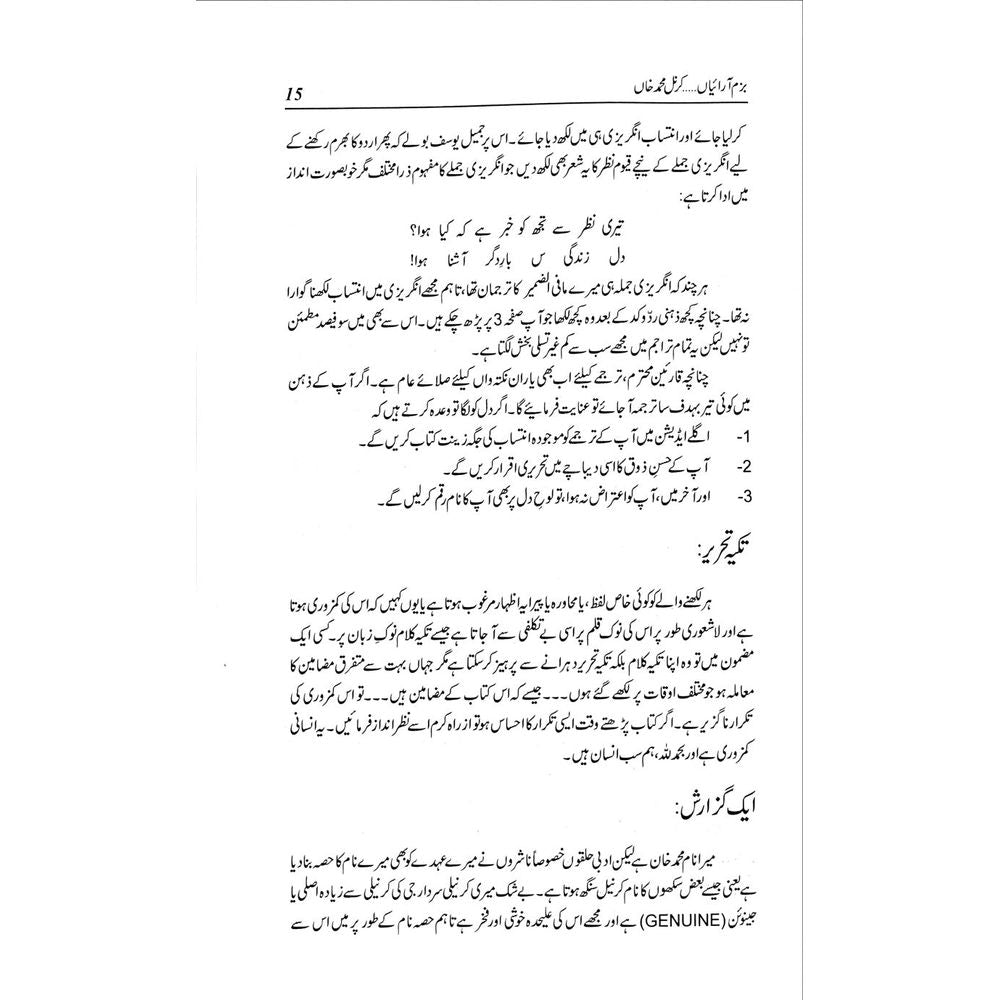 بزم آرائیاں.....کرنل محمد خاں 15
کر لیا جائے اور انتساب انگریزی ہی میں لکھ دیا جائے۔ اس پر جمیل یوسف بولے کہ پھر اردو کا بھرم رکھنے کے
لیے انگریزی جملے کے نیچے قیوم نظر کا یہ شعر بھی لکھ دیں جو انگریزی جملے کا مفہوم ذرا مختلف مگر خوبصورت انداز
میں ادا کرتا ہے:
تیری نظر سے تجھ کو خبر ہے کہ کیا ہوا؟
دل زندگی س باردگر آشنا ہوا!
ہر چند کہ انگریزی جملہ ہی میرے مافی الضمیر کا ترجمان تھا، تاہم مجھے انگریزی میں انتساب لکھنا گوارا
نہ تھا۔ چنانچہ کچھ ذہنی ردّ و کد کے بعد وہ کچھ لکھا جو آپ صفحہ 3 پر پڑھ چکے ہیں۔ اس سے بھی میں سو فیصد مطمئن
تو نہیں لیکن یہ تمام تراجم میں مجھے سب سے کم غیر تسلی بخش لگتا ہے۔
چنانچہ قارئین محترم، ترجمے کیلئے اب بھی یاران نکتہ داں کیلئے صلائے عام ہے۔ اگر آپ کے ذہن
میں کوئی تیر بہدف سا ترجمہ آ جائے تو عنایت فرمائیے گا۔ اگر دل کو لگا تو وعدہ کرتے ہیں کہ
1- اگلے ایڈیشن میں آپ کے ترجمے کو موجودہ انتساب کی جگہ زینت کتاب کریں گے۔
2- آپ کے حسنِ ذوق کا اسی دیباچے میں تحریری اقرار کریں گے۔
3- اور آخر میں، آپ کو اعتراض نہ ہوا، تو لوحِ دل پر بھی آپ کا نام رقم کر لیں گے۔
تکیہ تحریر:
ہر لکھنے والے کو کوئی خاص لفظ، یا محاورہ یا پیرایہ اظہار مرغوب ہوتا ہے یا یوں کہیں کہ اس کی کمزوری ہوتا
ہے اور لاشعوری طور پر اس کی نوک قلم پر اسی بے تکلفی سے آ جاتا ہے جیسے تکیہ کلام نوکِ زبان پر۔ کسی ایک
مضمون میں تو وہ اپنا تکیہ کلام بلکہ تکیہ تحریر دہرانے سے پرہیز کر سکتا ہے مگر جہاں بہت سے متفرق مضامین کا
معاملہ ہو جو مختلف اوقات پر لکھے گئے ہوں۔۔۔ جیسے کہ اس کتاب کے مضامین ہیں۔۔۔ تو اس کمزوری کی
تکرار ناگزیر ہے۔ اگر کتاب پڑھتے وقت ایسی تکرار کا احساس ہو تو از راہ کرم اسے نظر انداز فرمائیں۔ یہ انسانی
کمزوری ہے اور بحمدللہ، ہم سب انسان ہیں۔
ایک گزارش:
میرا نام محمد خان ہے لیکن ادبی حلقوں خصوصاً ناشروں نے میرے عہدے کو بھی میرے نام کا حصہ بنا دیا
ہے یعنی جیسے بعض سکھوں کا نام کرنیل سنگھ ہوتا ہے۔ بے شک میری کرنیلی سردار جی کی کرنیلی سے زیادہ اصلی یا
جینوئن (GENUINE) ہے اور مجھے اس کی علیحدہ خوشی اور فخر ہے تاہم حصہ نام کے طور پر میں اس سے